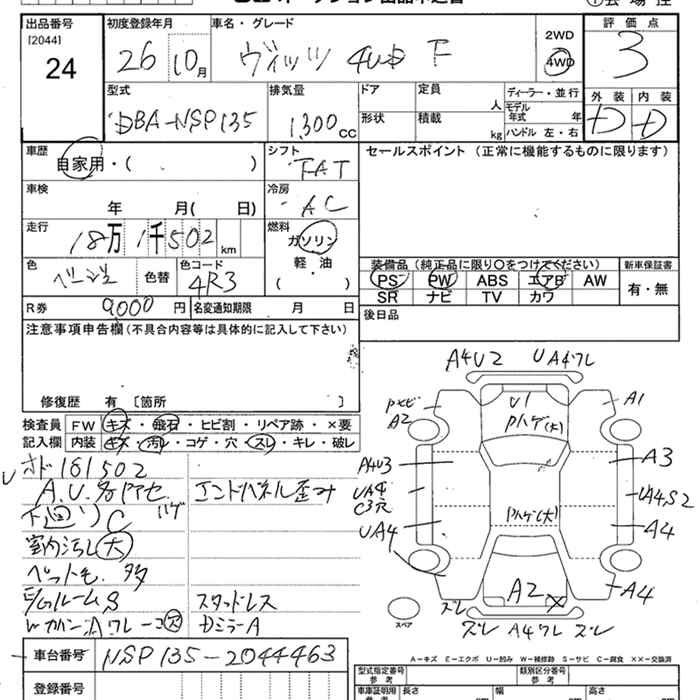 出品番号 初度登録年月 車名・グレード 評価点
[2044]
24 26 10月 ヴィッツ 4WD F 2WD 4WD 3
型式 排気量 ドア 定員 人 ディーラー・並行 外装 内装
DBA-NSP135 1300cc 形状 積載 kg モデル年式 年 ハンドル 左・右 D D
車歴 シフト セールスポイント (正常に機能するものに限ります)
自家用・( ) FAT
車検 冷房
年 月( 日) AC
走行 燃料
18万 1千502km ガソリン
軽・油
( )
色 ベージュ 色替 色コード 4R3
装備品 (純正品に限り○をつけてください) 新車保証書
PS PW ABS エアB AW 有・無
SR ナビ TV カワ
R券 9000円 名変通知期限 月 日 後日品
注意事項申告欄 (不具合内容等は具体的に記入して下さい)
修復歴 有 〔箇所 〕
検査員 FW キズ・飛石・ヒビ割・リペア跡・×要
記入欄 内装 キズ・汚レ・コゲ・穴・スレ・キレ・破レ
161502
A.U. エンドパネル歪み
下廻りC ハゲ
室内汚レ(大)
ペット毛 多
E/Gルーム S スタッドレス
DミラーA
車台番号 NSP135-2044463
登録番号
A4U2 UA4ワレ
A2 A1
U1
Pハゲ(大)
A4U3 A3
C3穴 UA4S2
Pハゲ(大)
UA4 A4
A2 X A4
ズレ
スペア ズレ A4ワレ ズレ
A-キズ E-エクボ U-凹み W-補修跡 S-サビ C-腐食 XX-交換済
型式指定番号 参考 類別区分番号 参考
車庫証明用 参考 長さ cm 幅 cm 高さ cm